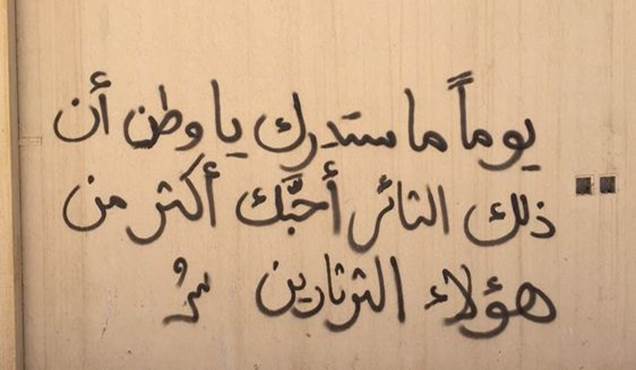 يوماً ما ستدرك يا وطن أن
ذلك الثائر أحبَّك أكثر من
هؤلاء الثرثارين